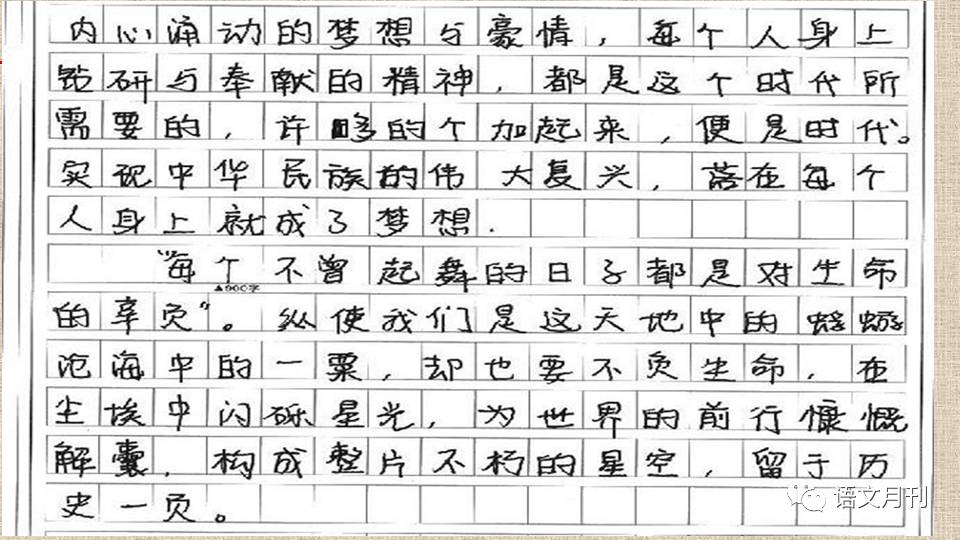 内心涌动的梦想与豪情，每个人身上
钻研与奉献的精神，都是这个时代所
需要的，许多的个加起来，便是时代。
实现中华民族的伟大复兴，落在每个
人身上就成了梦想.
"每个不曾起舞的日子都是对生命
▲900字
的辜负"。纵使我们是这天地中的蜉蝣
沧海中的一粟，却也要不负生命，在
尘埃中闪砾星光，为世界的前行慷慨
解囊，构成整片不朽的星空，留于历
史一页。
语文月刊